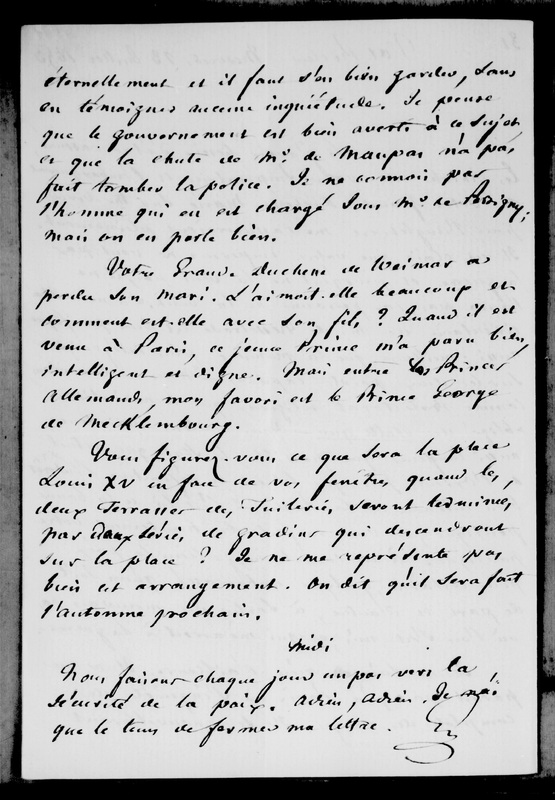 éternellement et il faut s'en bien garder, sans
en témoigner aucune inquiétude. Je pense
que le gouvernement est bien averti à ce sujet
et que la chute de Mr. de Maupas n'a pas
fait tomber la police. Je ne connois pas
l'homme qui en est chargé sous Mr. de Persigny;
mais on en parle bien.
Votre Grande Duchesse de Weimar a
perdu son mari. L'aimoit-elle beaucoup et
comment est-elle avec son fils ? Quand il est
venu à Paris, ce jeune Prince m'a paru bien,
intelligent et digne. Mais entre les Princes
allemands, mon favori est le Prince George
de Mecklembourg.
Vous figurez-vous ce que sera la place
Louis XV en face de vos fenêtres quand les
deux Terrasses des Tuileries seront terminées
par deux séries de gradins qui descendront
sur la place ? Je ne me représente pas
bien cet arrangement. On dit qu'il sera fait
l'automne prochain.
Midi
Nous faisons chaque jour un pas vers la
sécurité de la paix. Adieu, Adieu. Je n'ai
que le tems de fermer ma lettre.